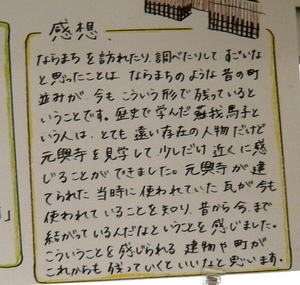 感想
ならまちを訪れたり、調べたりして すごいな
と思ったことは ならまちのような 昔の町
並みが、今も こういう形で 残っていると
いうことです。歴史で学んだ 蘇我馬子と
いう人は、とても 遠い存在の人物だけど
元興寺を見学して 少しだけ 近くに感
じることが できました。元興寺が 建
てられた 当時に使われていた 瓦が今も
使われていることを知り、昔から今まで
結がっているんだなということを 感じました。
こういうことを感じられる 建物や 町が
これからも 残っていくといいなと思います。